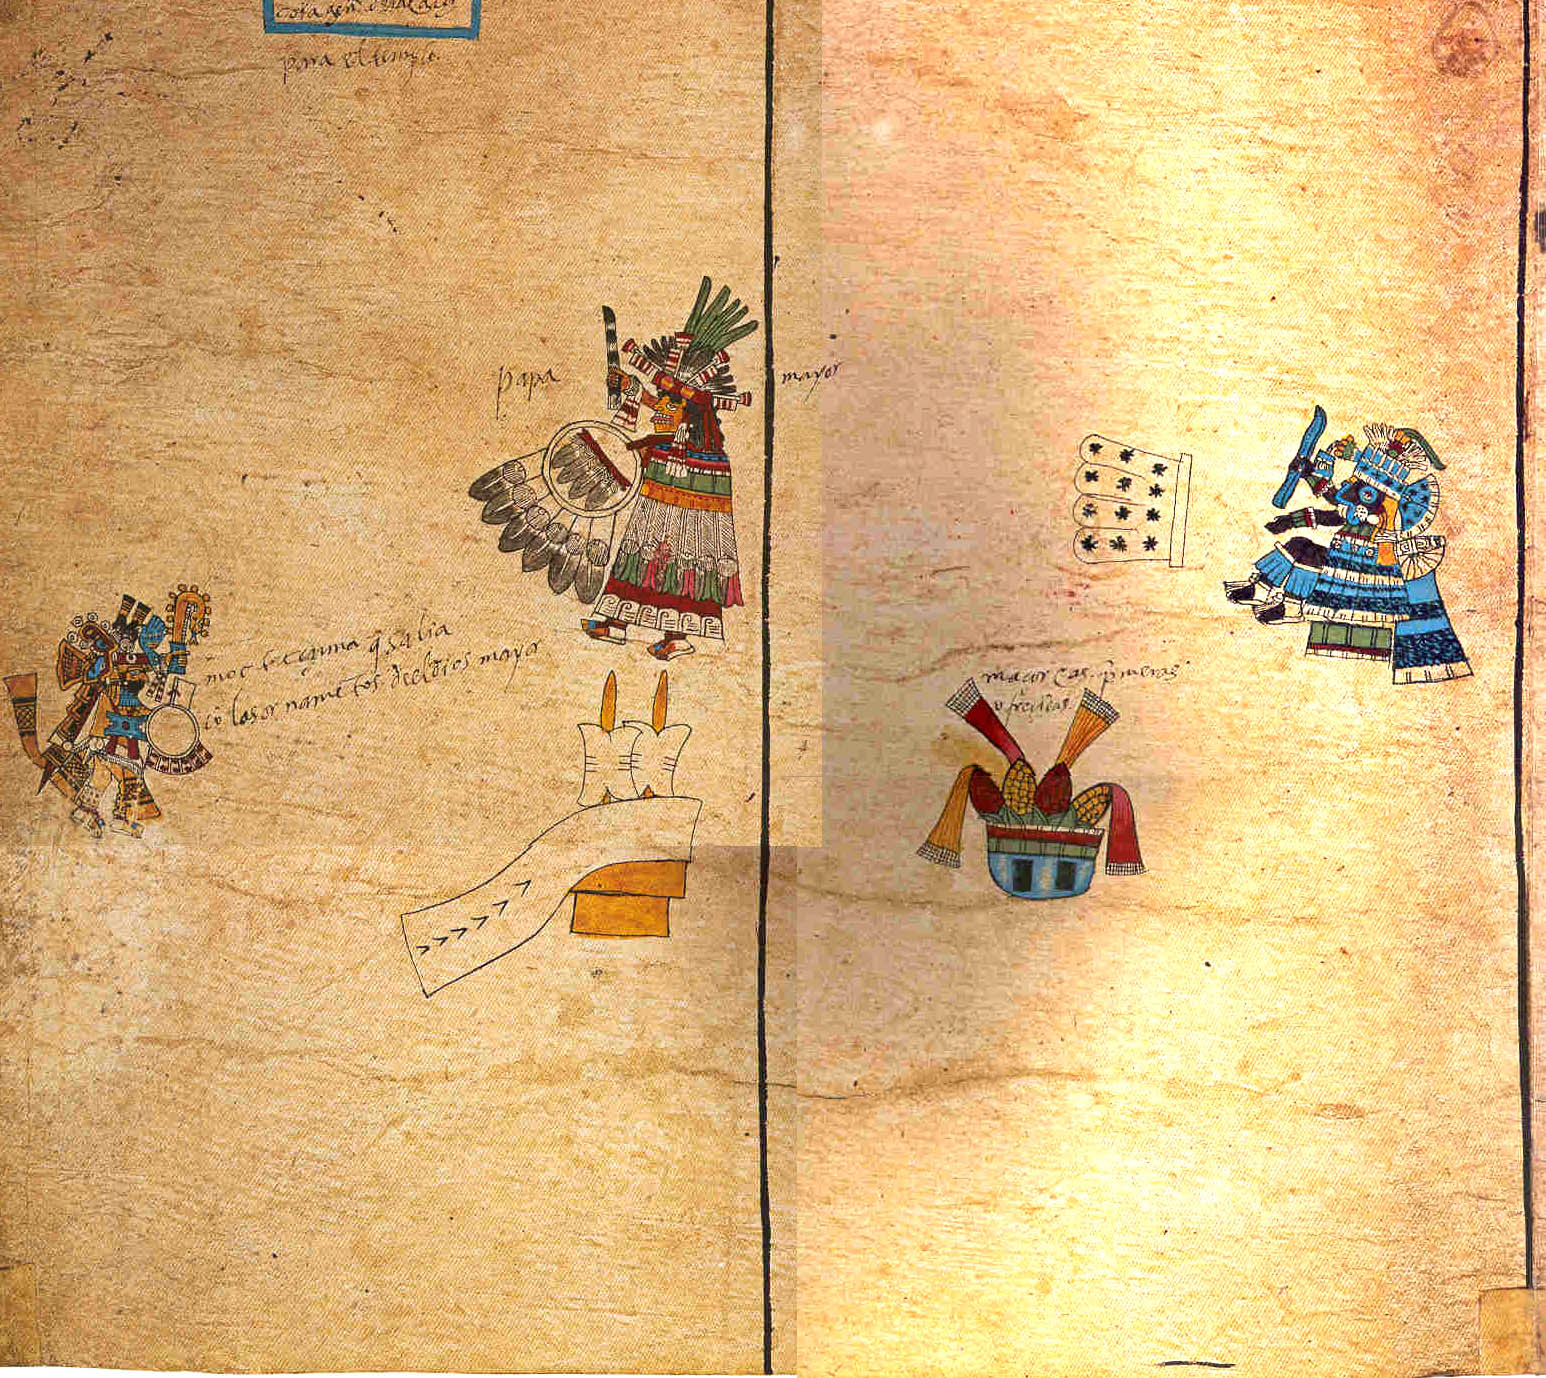 para el templo.
papa mayor
moctecçuma q̃ salia
cõ los ornamẽtos del dios mayor
maçorcas p̃meras
o frescas.